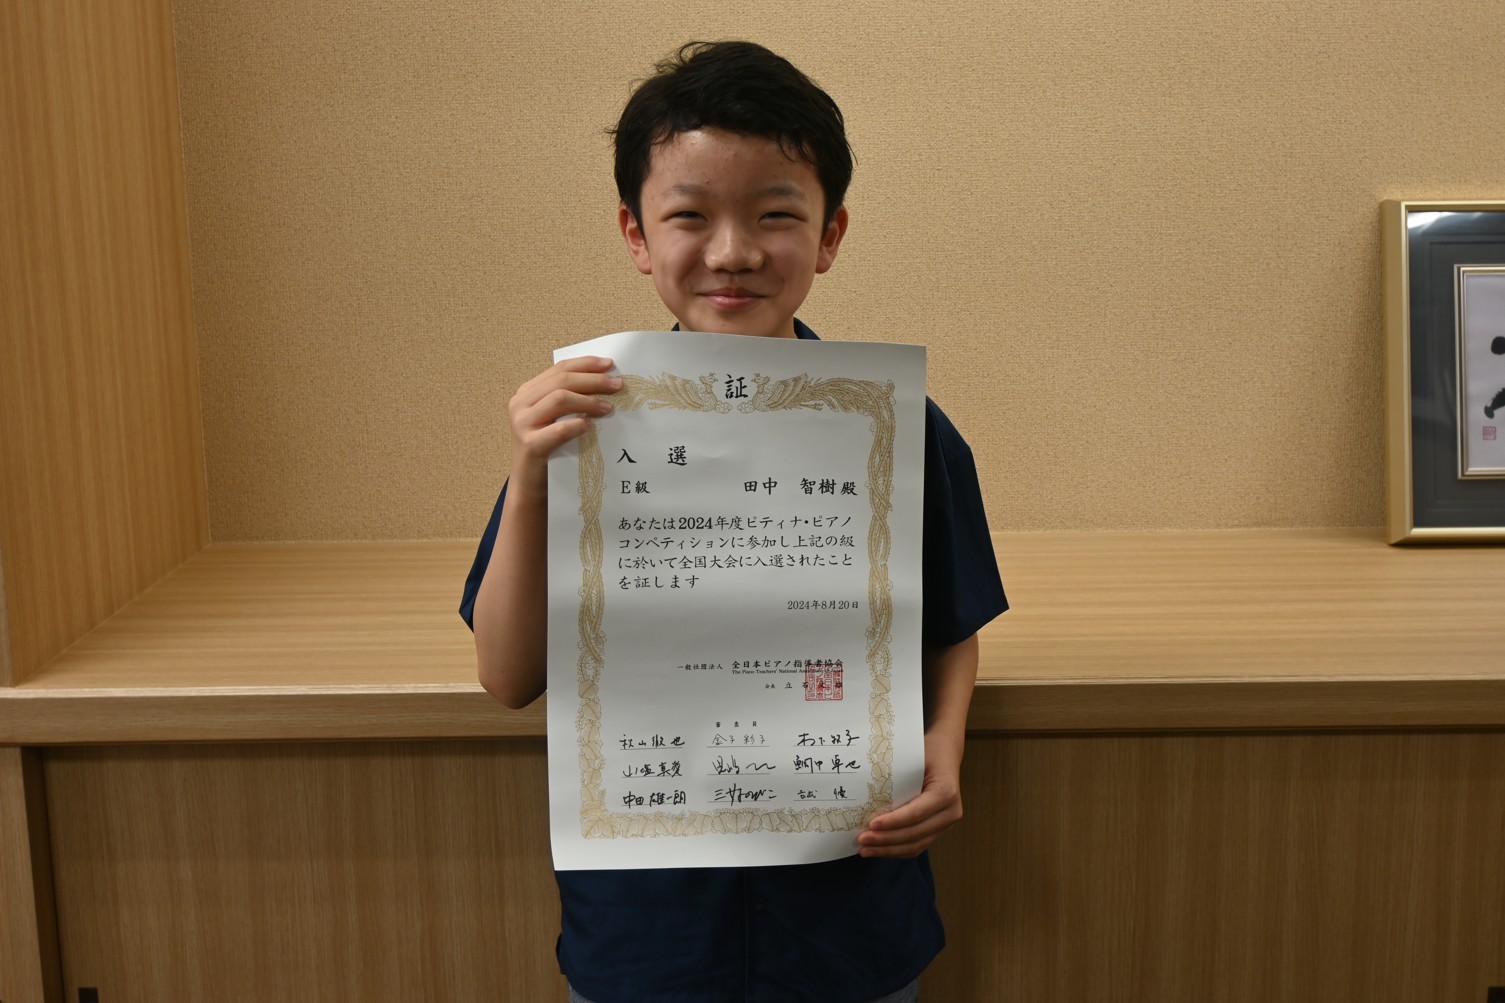 証
入選
E級 田中 智樹 殿
あなたは2024年度ピティナ・ピアノ
コンペティションに参加し上記の級
に於いて全国大会に入選されたこと
を証します
2024年8月20日
一般社団法人 全日本ピアノ指導者協会
The Piano Teachers' National Association
会長
審査員
秋山徹也 金子彩子 木下叔子
鯛中卓也
中田雄一朗 三好のびこ